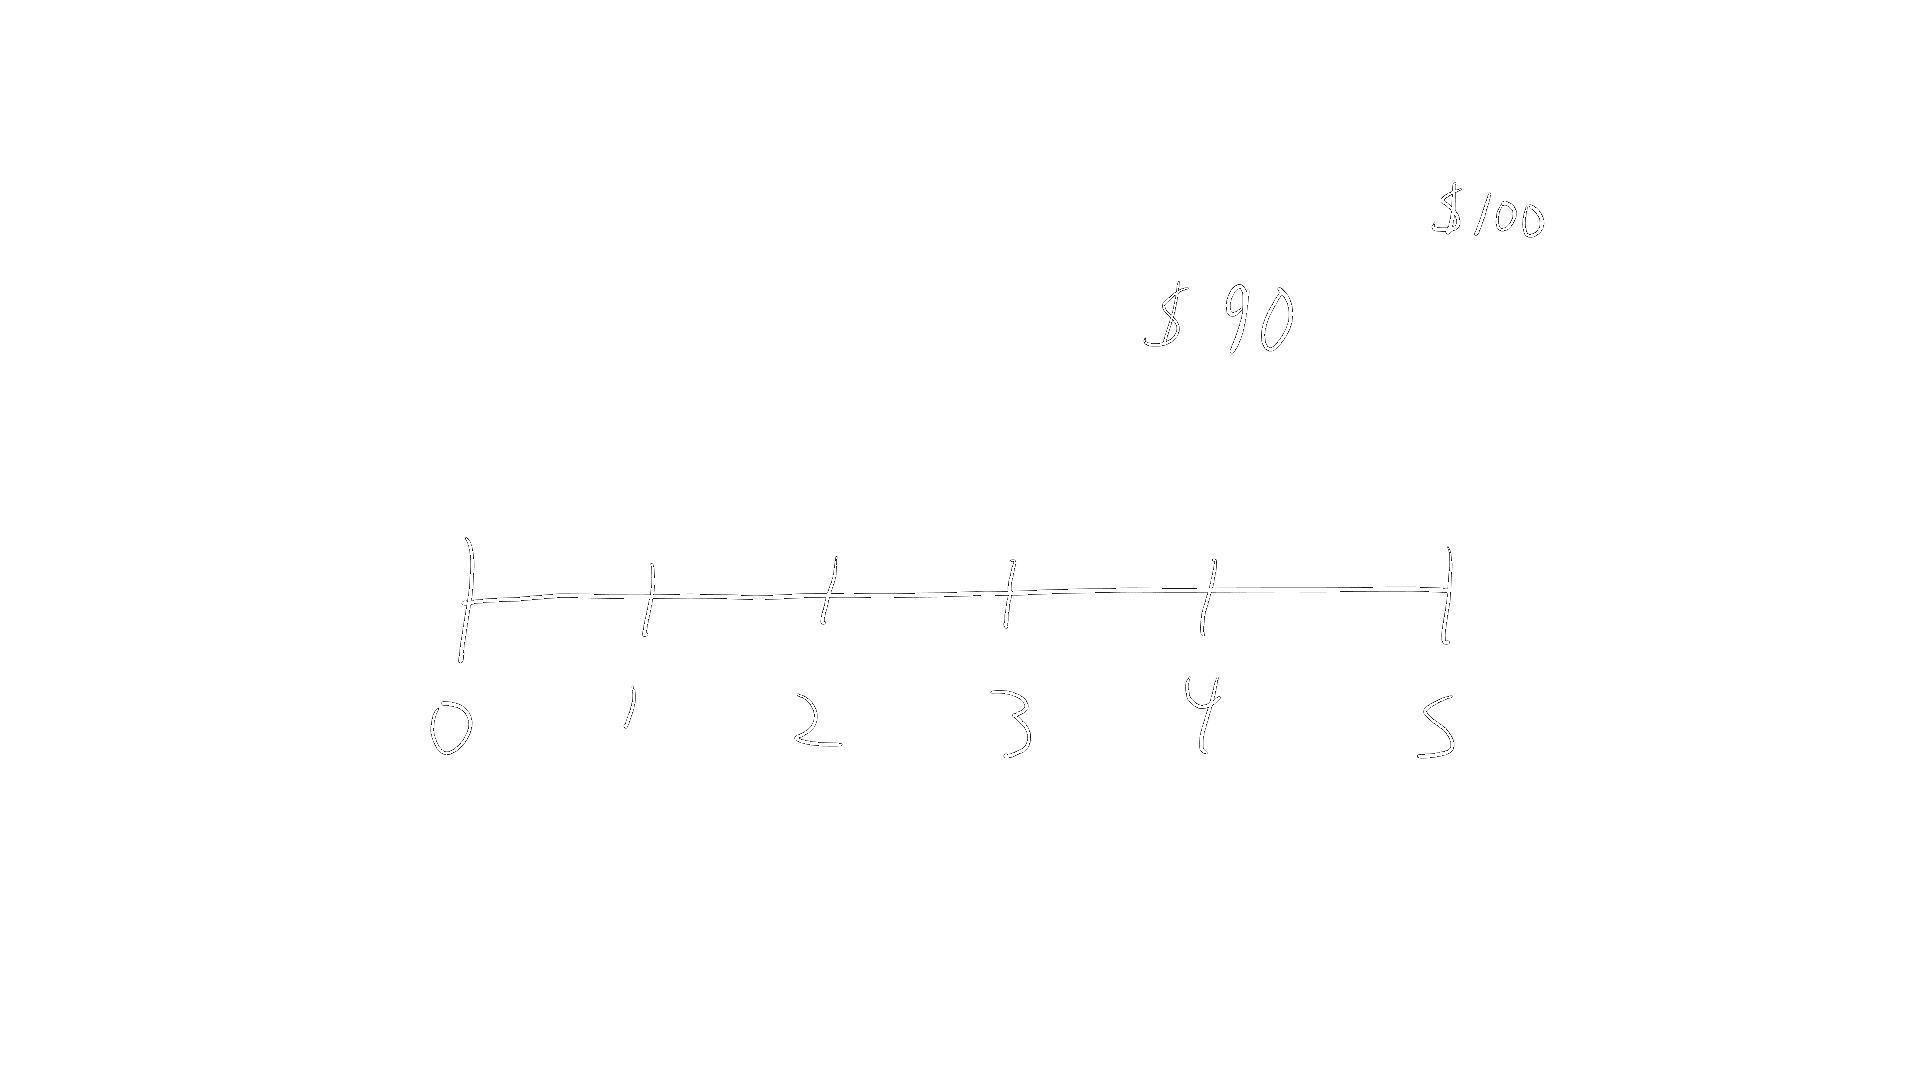 $100
$90
0 1 2 3 4 5